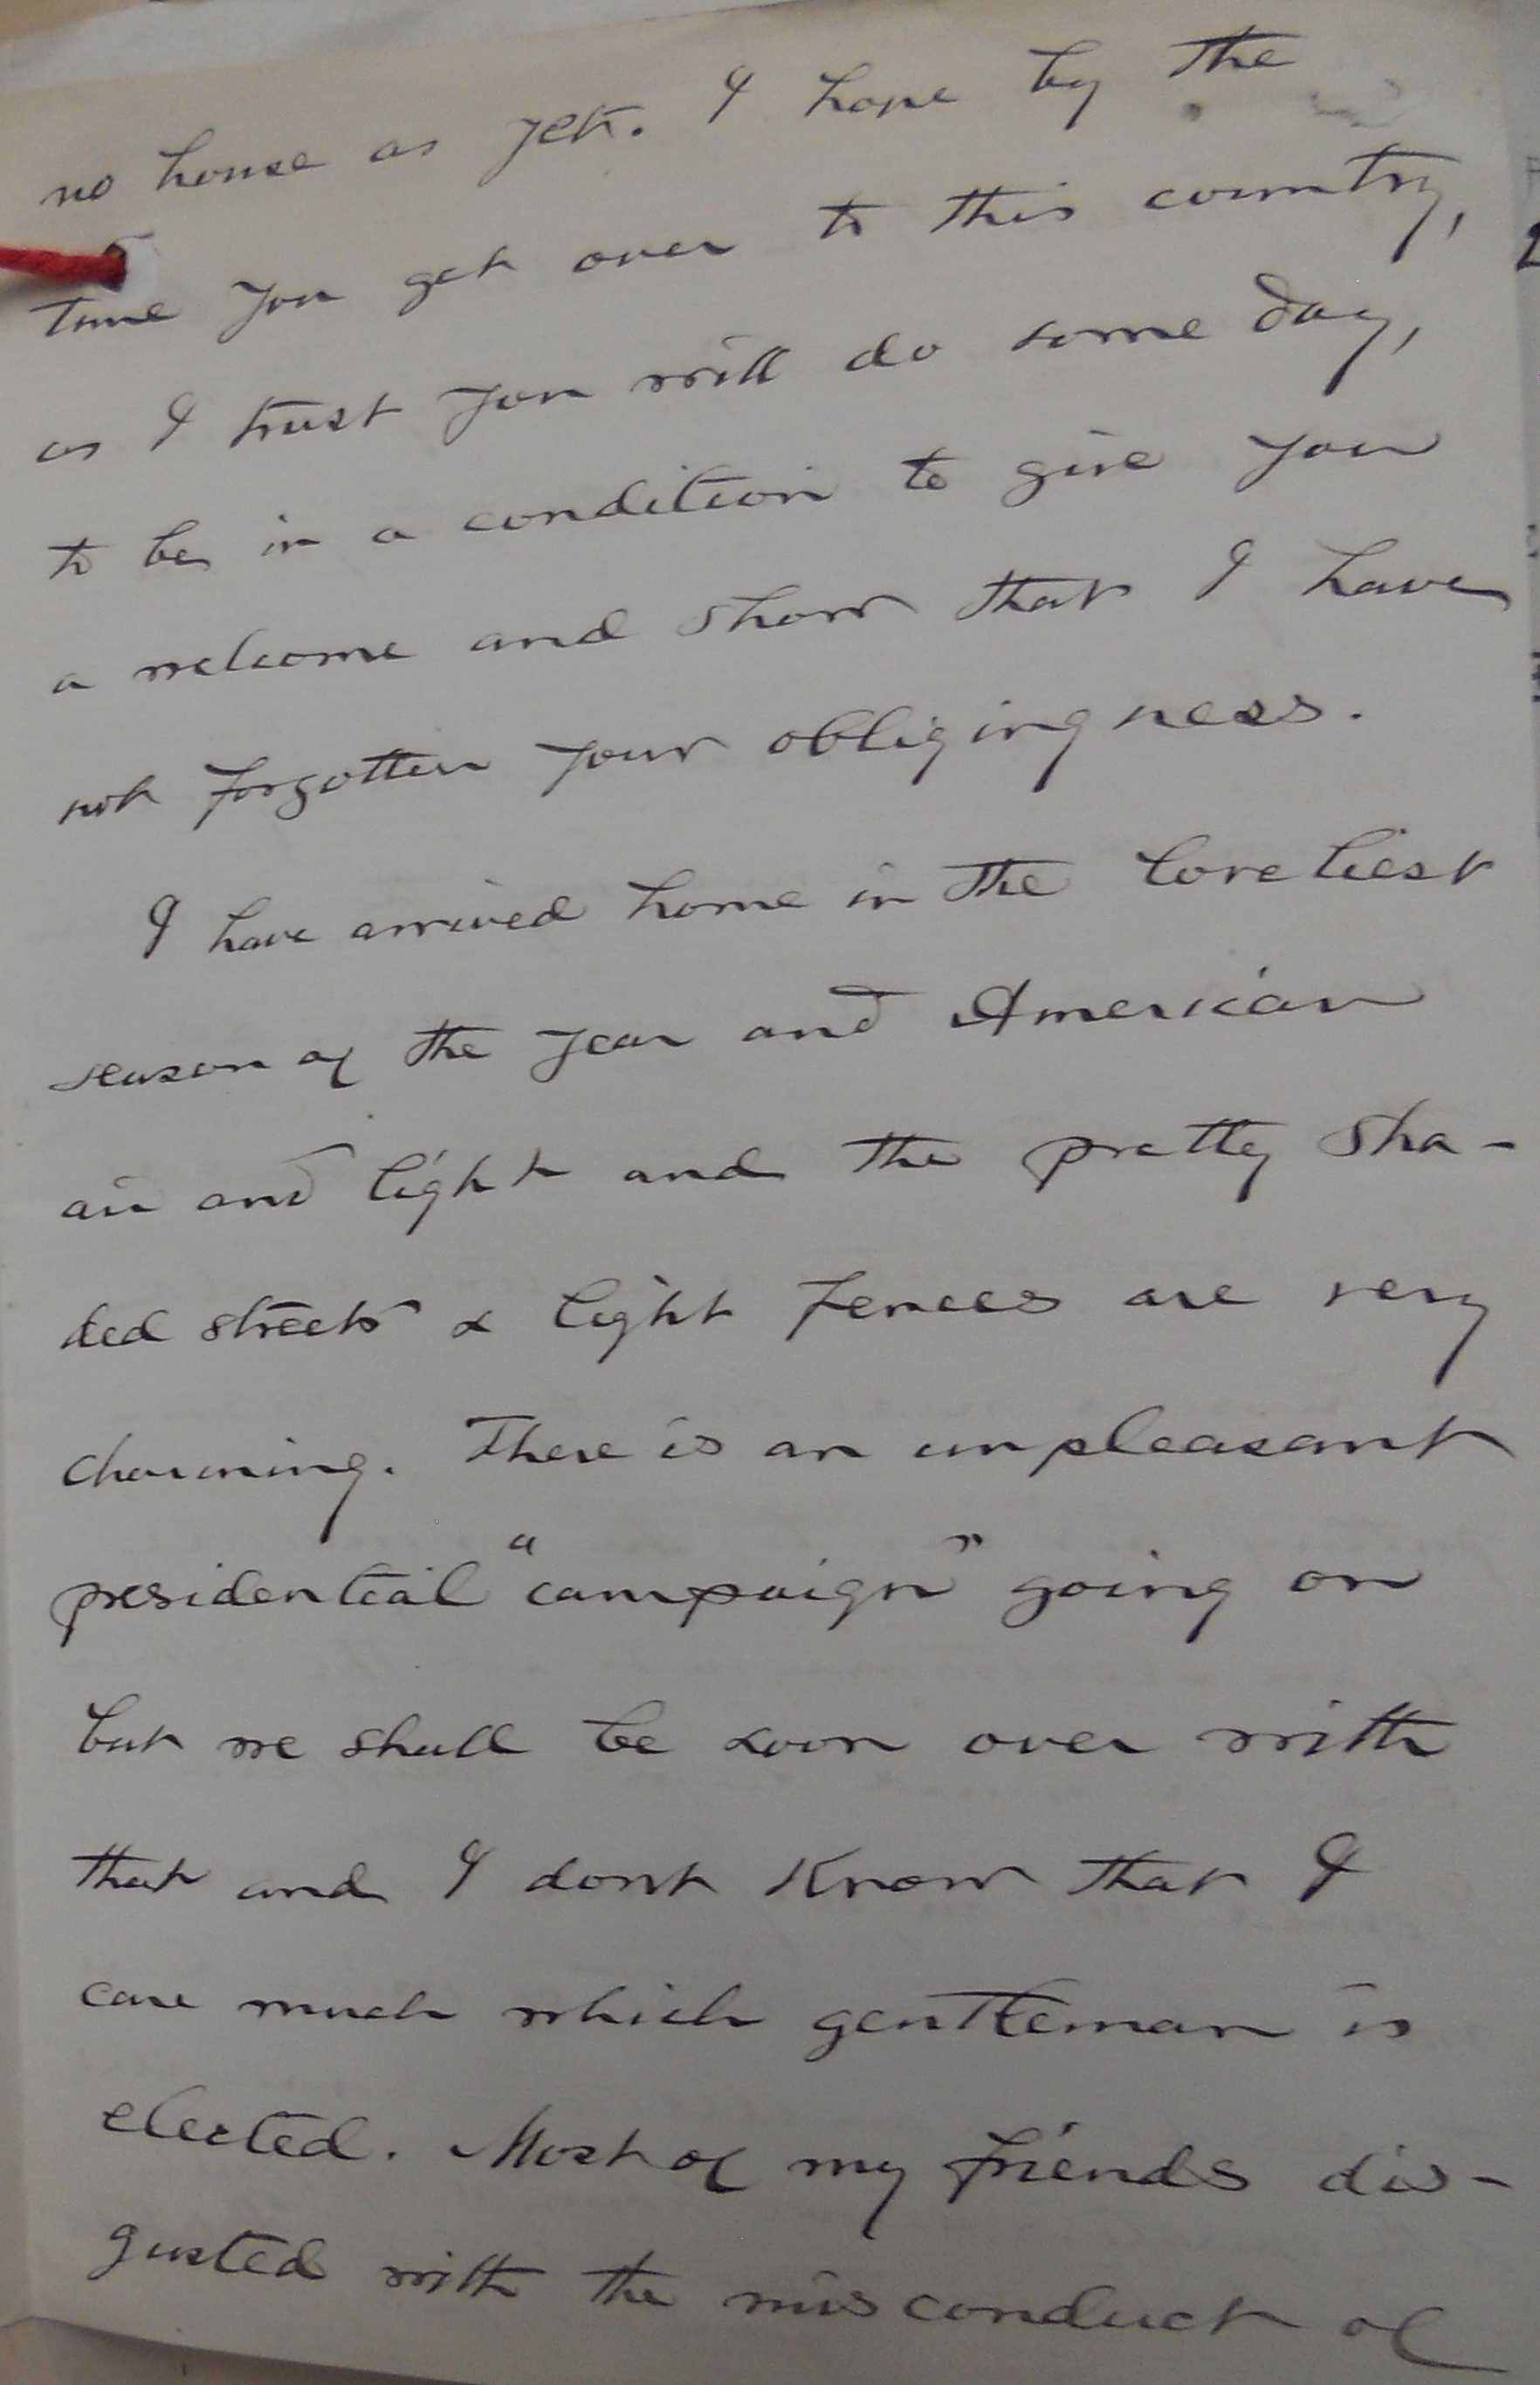 no house as yet. I hope by the
time you get over to this country,
as I trust you will do some day,
to be in a condition to give you
a welcome and show that I have
not forgotten your obligingness.
I have arrived home in the loveliest
season of the year and American
air and light and the pretty sha-
ded streets & light fences are very
charming. There is an unpleasant
presidential "campaign" going on
but we shall be soon over with
that and I dont know that I
care much which gentleman is
elected. Most of my friends dis-
gusted with the misconduct of